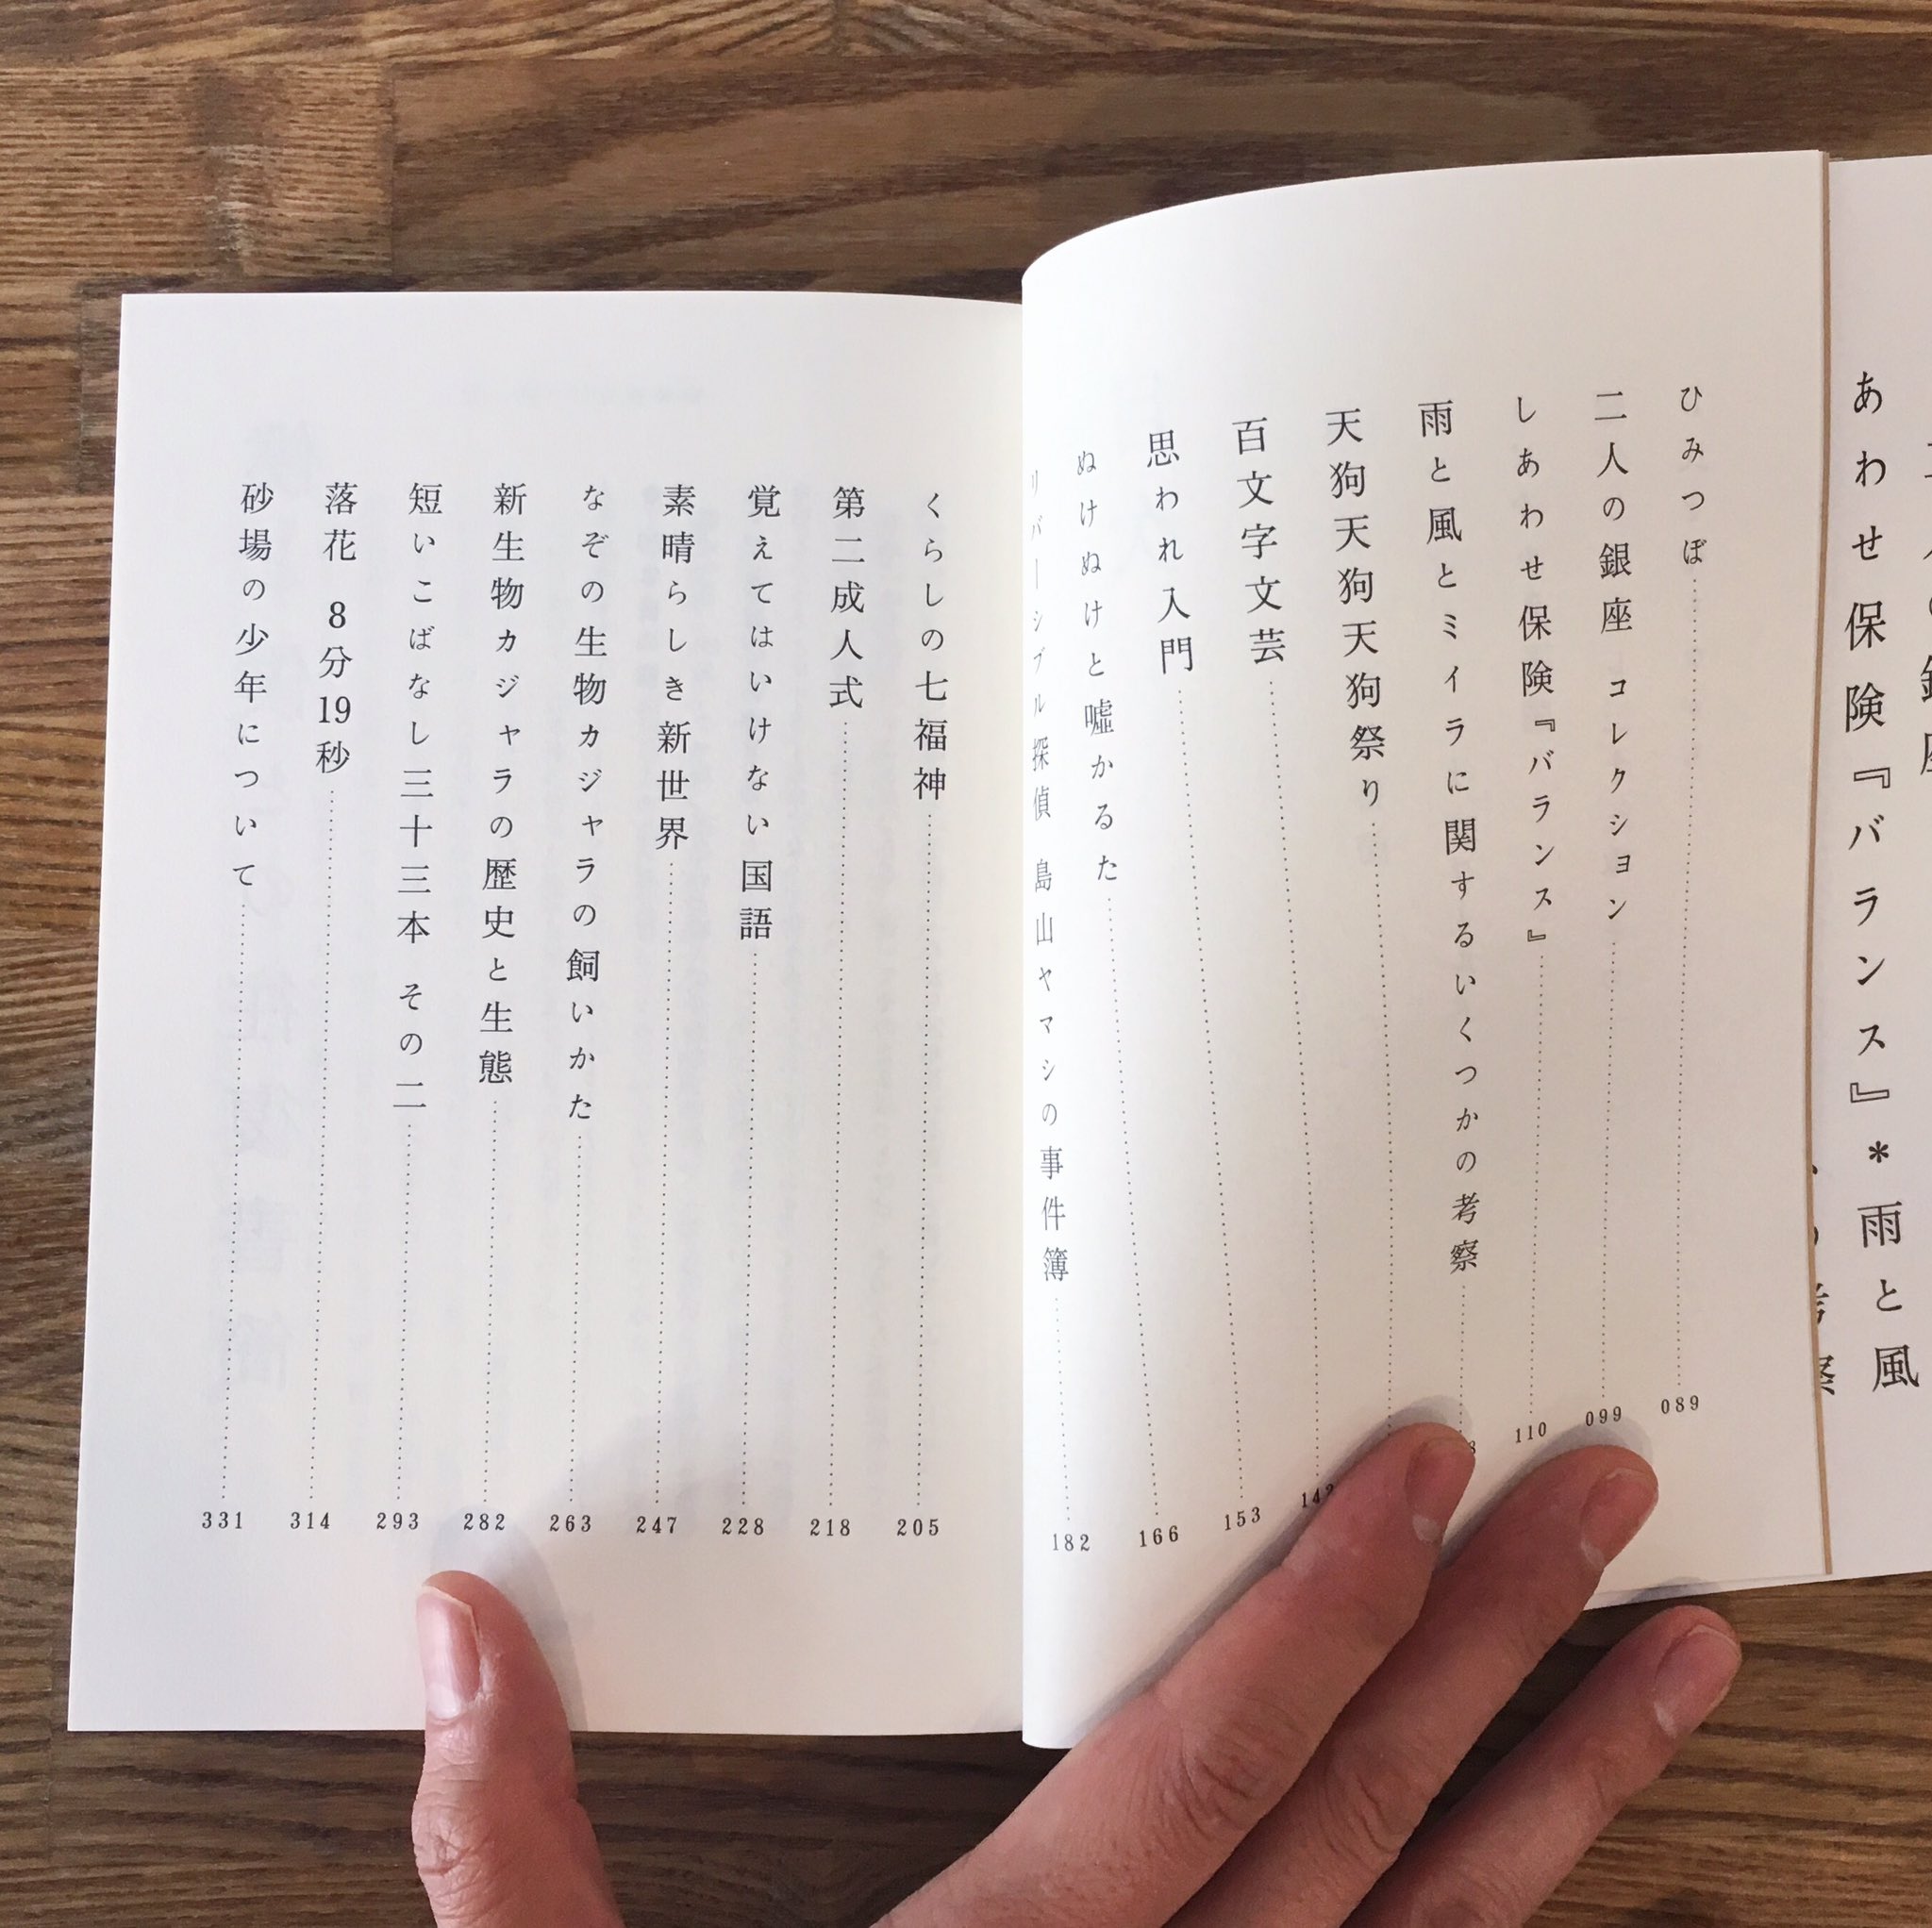 あわせ保険『バランス』*雨と風
ひみつぼ 089
二人の銀座 コレクション 099
しあわせ保険『バランス』 110
雨と風とミイラに関するいくつかの考察
天狗天狗天狗祭り
百文字文芸 142
思われ入門 153
ぬけぬけと嘘かるた 166
リバーシブル探偵 島山ヤマシの事件簿 182
くらしの七福神 205
第二成人式 218
覚えてはいけない国語 228
素晴らしき新世界 247
なぞの生物カジャラの飼いかた 263
新生物カジャラの歴史と生態 282
短いこばなし三十三本 その二 293
落花 8分19秒 314
砂場の少年について 331